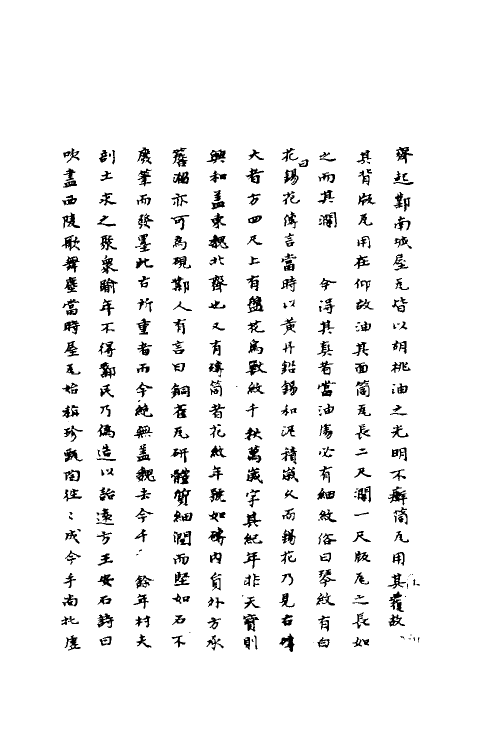 齊起鄴南城屋瓦皆以胡桃油之光明不癬筒瓦用其覆故
其背版瓦用在仰故油其面筒瓦長二尺濶一尺版瓦之長如
之而其濶 今得其真者當油處必有細紋俗曰琴紋有白
花曰錫花傳言當時以黄丹鉛錫和泥積歲久而錫花乃見古磚
大者方四尺上有盤花鳥獸紋千秋萬歲字其紀年非天寶則
興和蓋東魏北齊也又有磚筒者花紋年號如磚内負外方承
簷溜亦可為硯鄴人有言曰銅雀瓦研體質細潤而堅如石不
廢筆而發墨此古所重者而今絶無蓋魏去今千餘年村夫
剖土求之聚衆踰年不得鄴民乃偽造以詒遠方王安石詩曰
吹盡西陵歌舞塵當時屋瓦始稱珍甄陶往〻成今手尚托虚